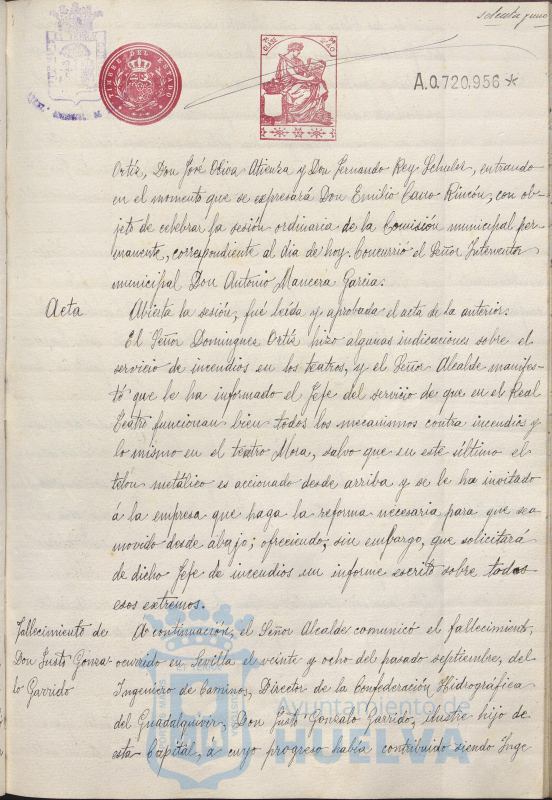 setenta y uno
TIMBRE DEL ESTADO
A.0.720.956 *
Ortíz, Don José Oliva Atienza y Don Fernando Rey Schuler, entrando
en el momento que se expresará Don Emilio Cano Rincón, con ob-
jeto de celebrar la sesión ordinaria de la Comisión municipal per-
manente, correspondiente al día de hoy. Concurrió el Señor Interventor
municipal Don Antonio Mancera Garcia.
Acta
Abierta la sesión, fué leída y aprobada el acta de la anterior.
El Señor Domínguez Ortíz hizo algunas indicaciones sobre el
servicio de incendios en los teatros, y el Señor Alcalde manifes-
tó que le ha informado el Jefe del servicio de que en el Real
Teatro funcionan bien todos los mecanismos contra incendios y
lo mismo en el teatro Mora, salvo que en este último el
telón metálico es accionado desde arriba y se le ha invitado
á la empresa que haga la reforma necesaria para que sea
movido desde abajo; ofreciendo, sin embargo, que solicitará
de dicho Jefe de incendios un informe escrito sobre todos
esos extremos.
Fallecimiento de
Don Justo Gonza-
lo Garrido
A continuación, el Señor Alcalde comunicó el fallecimiento,
ocurrido en Sevilla el veinte y ocho del pasado septiembre, del
Ingeniero de Caminos, Director de la Confederación Hidrográfica
del Guadalquivir, Don Justo Gonzalo Garrido, ilustre hijo de
esta Capital, á cuyo progreso había contribuido siendo Inge
Ayuntamiento de
HUELVA